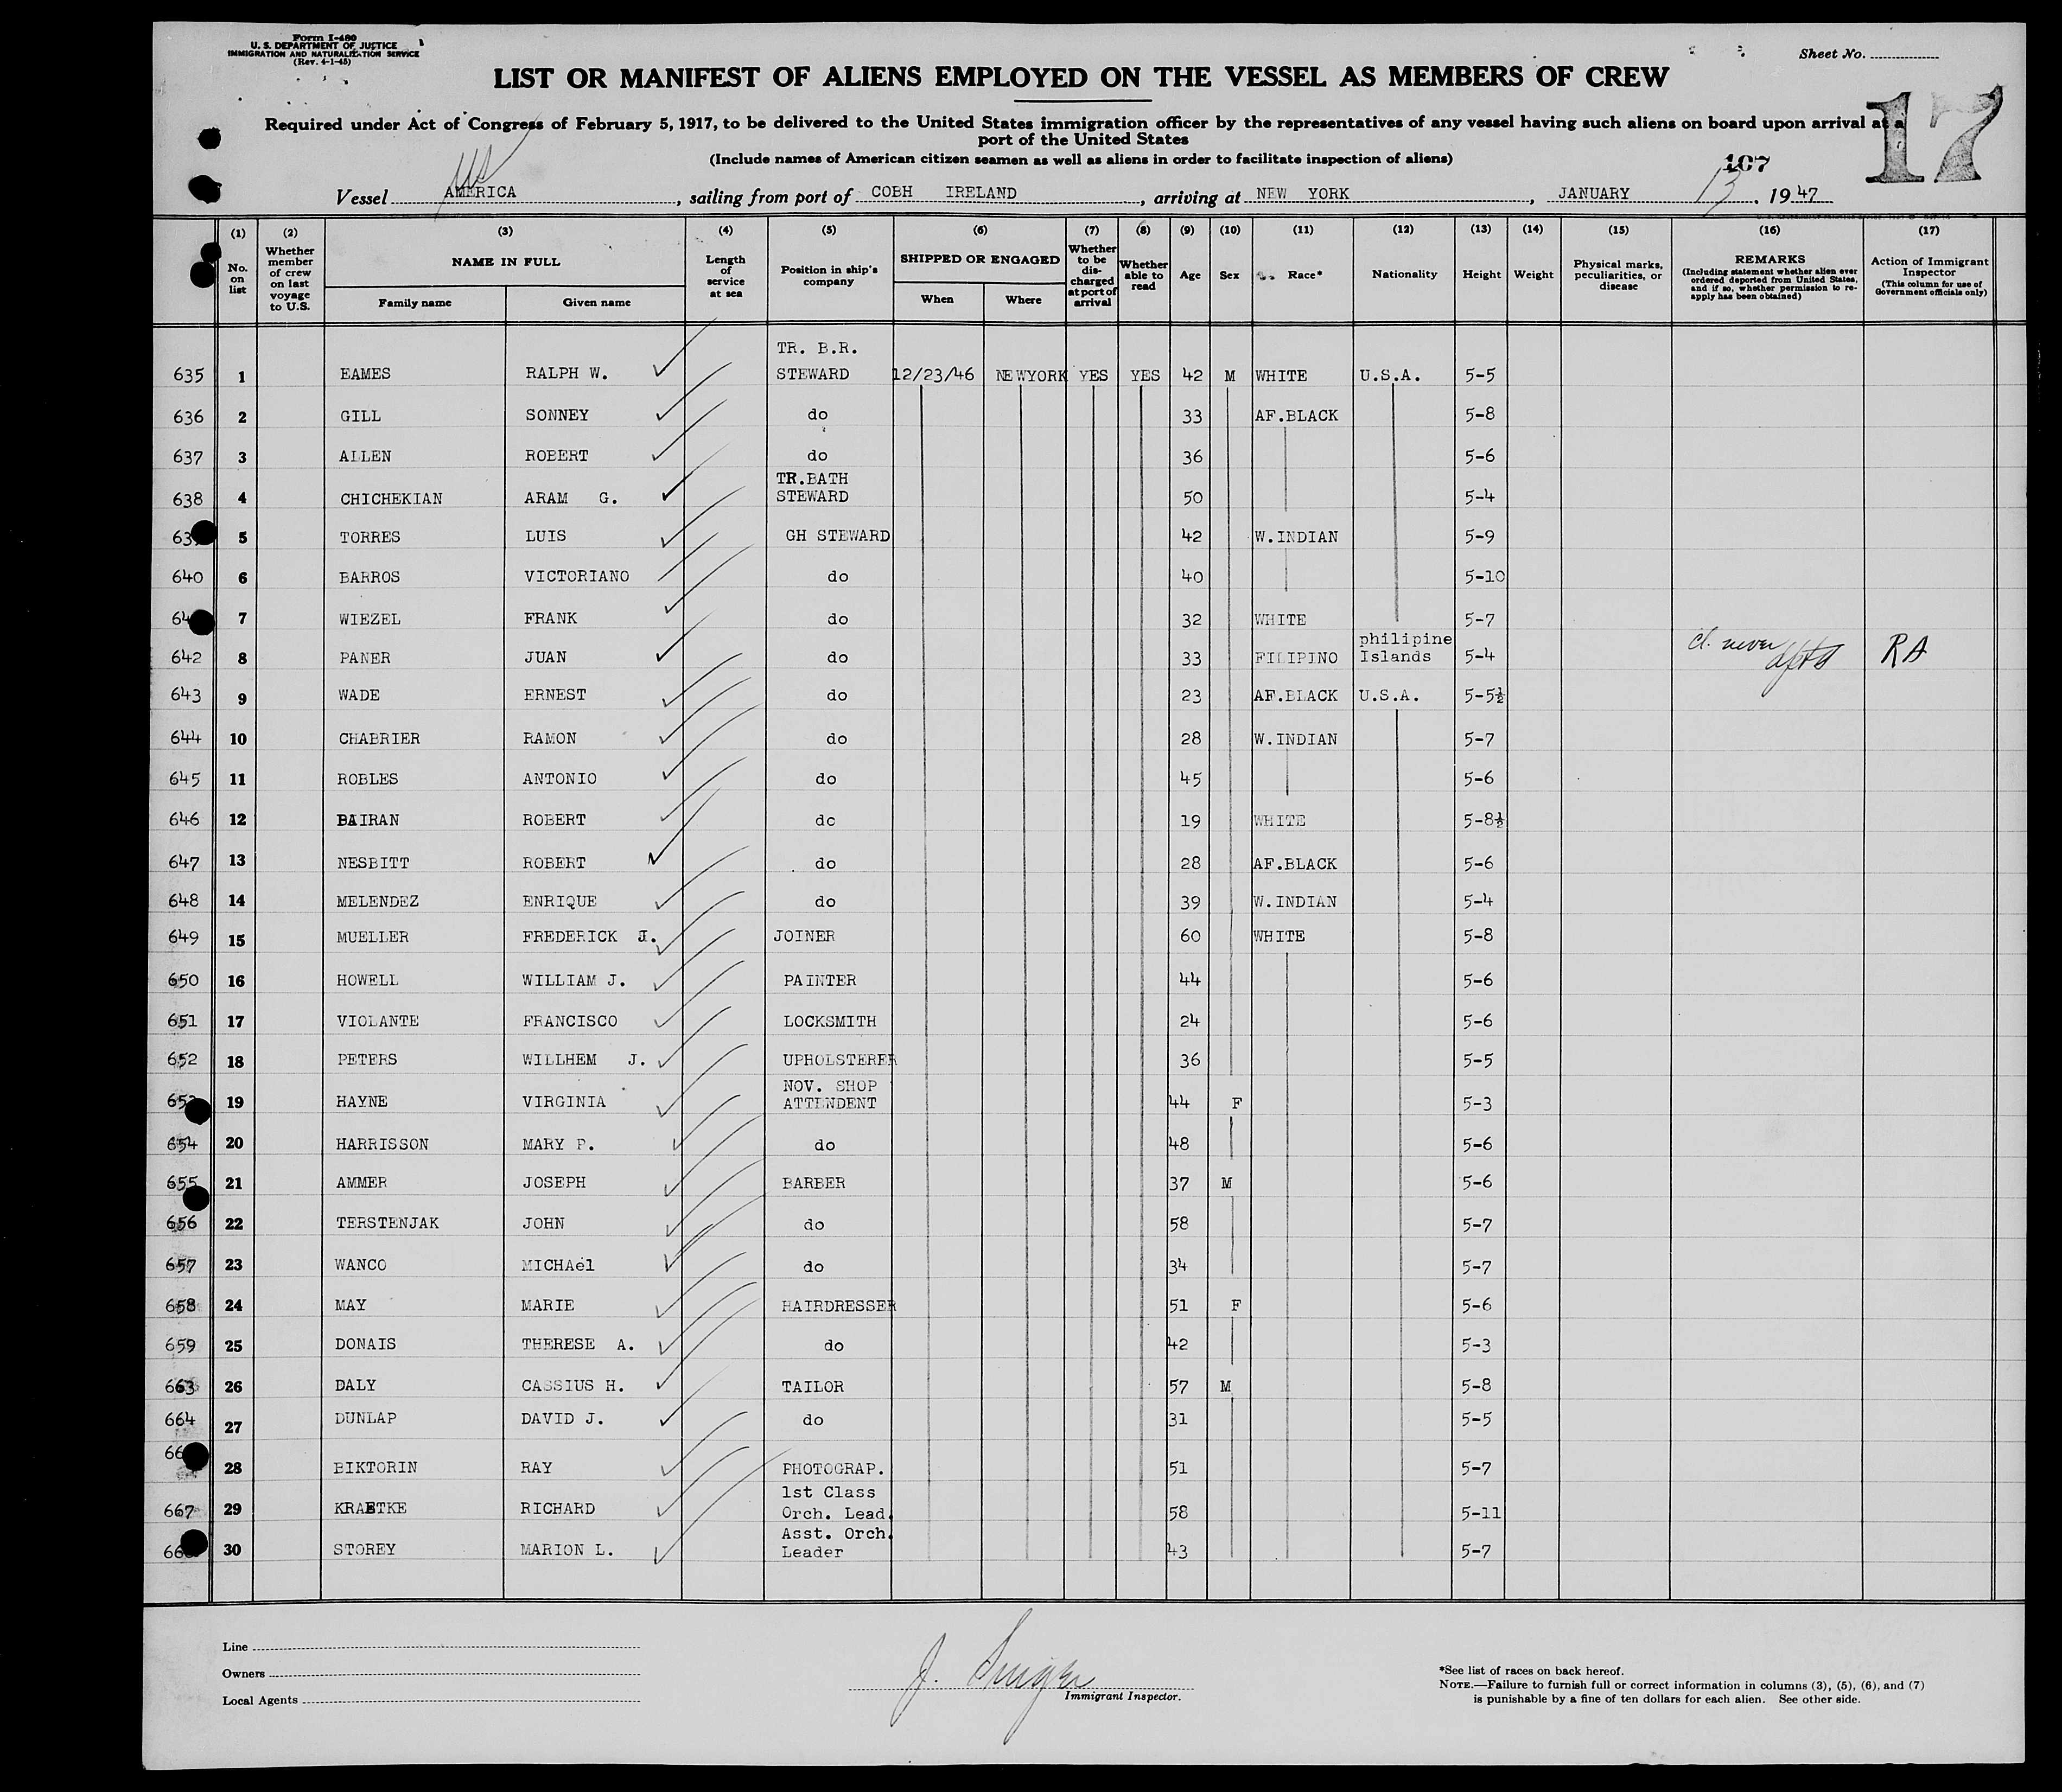 Form I-480
U. S. DEPARTMENT OF JUSTICE
IMMIGRATION AND NATURALIZATION SERVICE
(Rev. 4-1-45)
Sheet No.
LIST OR MANIFEST OF ALIENS EMPLOYED ON THE VESSEL AS MEMBERS OF CREW
17
Required under Act of Congress of February 5, 1917, to be delivered to the United States immigration officer by the representatives of any vessel having such aliens on board upon arrival at a
port of the United States
(Include names of American citizen seamen as well as aliens in order to facilitate inspection of aliens)
107
Vessel US AMERICA, sailing from port of COBH IRELAND, arriving at NEW YORK, JANUARY 13, 1947
(1) No. on list
(2) Whether member of crew on last voyage to U.S.
(3) NAME IN FULL Family name Given name
(4) Length of service at sea
(5) Position in ship's company
(6) SHIPPED OR ENGAGED When Where
(7) Whether to be discharged at port of arrival
(8) Whether able to read
(9) Age
(10) Sex
(11) Race*
(12) Nationality
(13) Height
(14) Weight
(15) Physical marks, peculiarities, or disease
(16) REMARKS (Including statement whether alien ever ordered deported from United States, and if so, whether permission to reapply has been obtained)
(17) Action of Immigrant Inspector (This column for use of Government officials only)
635 1 EAMES RALPH W. TR. B.R. STEWARD 12/23/46 NEWYORK YES YES 42 M WHITE U.S.A. 5-5
636 2 GILL SONNEY do 33 AF.BLACK 5-8
637 3 ALLEN ROBERT do 36 5-6
638 4 CHICHEKIAN ARAM G. TR.BATH STEWARD 50 5-4
63 5 TORRES LUIS GH STEWARD 42 W.INDIAN 5-9
640 6 BARROS VICTORIANO do 40 5-10
64 7 WIEZEL FRANK do 32 WHITE 5-7
642 8 PANER JUAN do 33 FILIPINO philipine Islands 5-4 cl. never dptd RA
643 9 WADE ERNEST do 23 AF.BLACK U.S.A. 5-5½
644 10 CHABRIER RAMON do 28 W.INDIAN 5-7
645 11 ROBLES ANTONIO do 45 5-6
646 12 BAIRAN ROBERT dc 19 WHITE 5-8½
647 13 NESBITT ROBERT do 28 AF.BLACK 5-6
648 14 MELENDEZ ENRIQUE do 39 W.INDIAN 5-4
649 15 MUELLER FREDERICK J. JOINER 60 WHITE 5-8
650 16 HOWELL WILLIAM J. PAINTER 44 5-6
651 17 VIOLANTE FRANCISCO LOCKSMITH 24 5-6
652 18 PETERS WILLHEM J. UPHOLSTERER 36 5-5
653 19 HAYNE VIRGINIA NOV. SHOP ATTENDENT 44 F 5-3
654 20 HARRISSON MARY P. do 48 5-6
655 21 AMMER JOSEPH BARBER 37 M 5-6
656 22 TERSTENJAK JOHN do 58 5-7
657 23 WANCO MICHAel do 34 5-7
658 24 MAY MARIE HAIRDRESSER 51 F 5-6
659 25 DONAIS THERESE A. do 42 5-3
663 26 DALY CASSIUS H. TAILOR 57 M 5-8
664 27 DUNLAP DAVID J. do 31 5-5
66 28 BIKTORIN RAY PHOTOGRAP. 51 5-7
667 29 KRAETKE RICHARD 1st Class Orch. Lead. 58 5-11
66 30 STOREY MARION L. Asst. Orch. Leader 43 5-7
Line
Owners
Local Agents
J. Singer
Immigrant Inspector.
*See list of races on back hereof.
NOTE.—Failure to furnish full or correct information in columns (3), (5), (6), and (7)
is punishable by a fine of ten dollars for each alien. See other side.